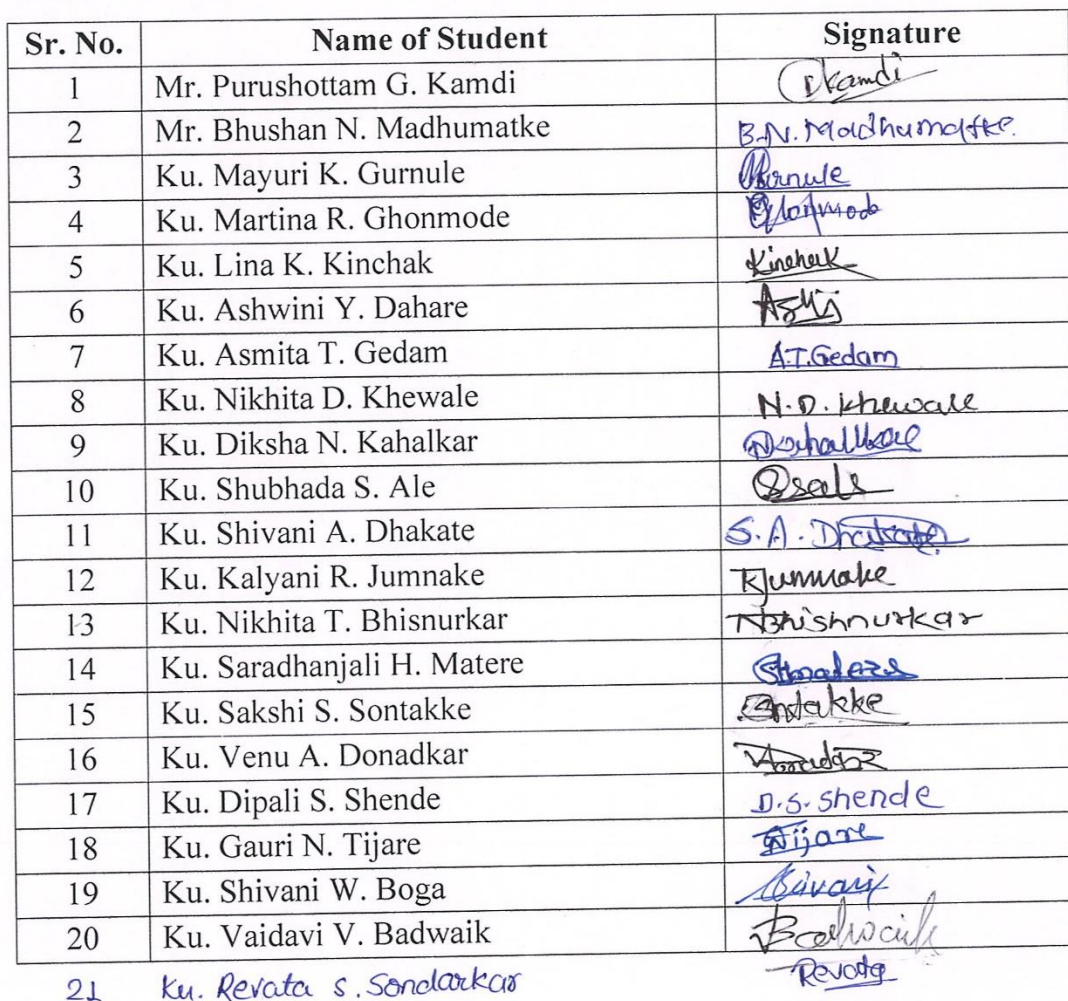 Sr. No. Name of Student Signature
1 Mr. Purushottam G. Kamdi Kamdi
2 Mr. Bhushan N. Madhumatke B.N. Madhumatke.
3 Ku. Mayuri K. Gurnule
4 Ku. Martina R. Ghonmode
5 Ku. Lina K. Kinchak Kinchak
6 Ku. Ashwini Y. Dahare
7 Ku. Asmita T. Gedam A.T.Gedam
8 Ku. Nikhita D. Khewale N.D. Khewale
9 Ku. Diksha N. Kahalkar
10 Ku. Shubhada S. Ale
11 Ku. Shivani A. Dhakate S.A. Dhakate
12 Ku. Kalyani R. Jumnake KJumnake
13 Ku. Nikhita T. Bhisnurkar NBhishnurkar
14 Ku. Saradhanjali H. Matere
15 Ku. Sakshi S. Sontakke Sontakke
16 Ku. Venu A. Donadkar
17 Ku. Dipali S. Shende D.S. Shende
18 Ku. Gauri N. Tijare Tijare
19 Ku. Shivani W. Boga
20 Ku. Vaidavi V. Badwaik Badwaik
21 Ku. Revata S. Sondarkar Revata